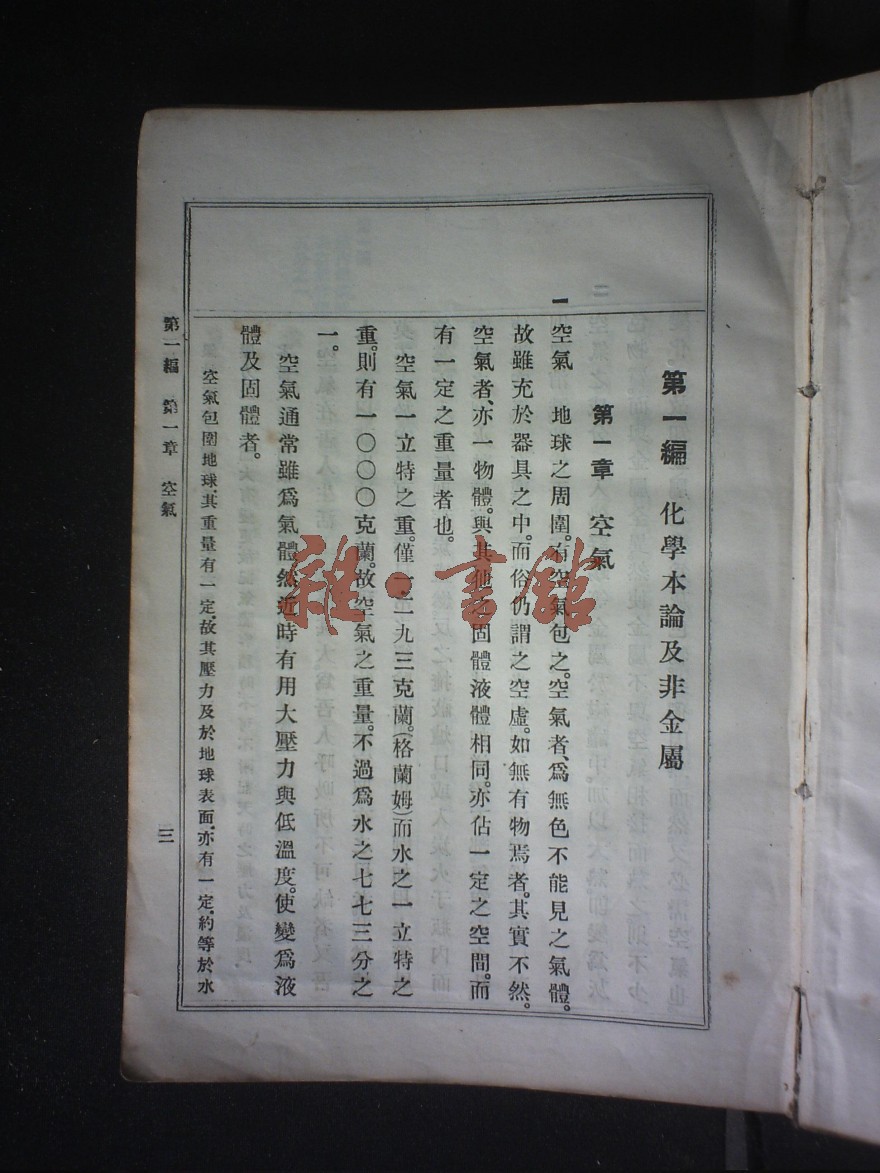 第一編 化學本論及非金屬
第一章 空氣
一
空氣 地球之周圍。有空氣包之。空氣者、爲無色不能見之氣體。
故雖充於器具之中。而俗仍謂之空虛。如無有物焉者。其實不然。
空氣者、亦一物體。與其他之固體液體相同。亦佔一定之空間。而
有一定之重量者也。
空氣一立特之重。僅一・二九三克蘭。(格蘭姆)而水之一立特之
重。則有一〇〇〇克蘭。故空氣之重量。不過爲水之七七三分之
一。
空氣通常雖爲氣體。然近時有用大壓力與低溫度。使變爲液
體及固體者。
空氣包圍地球、其重量有一定、故其壓力及於地球表面、亦有一定、約等於水
第一編 第一章 空氣
三
雜・書館